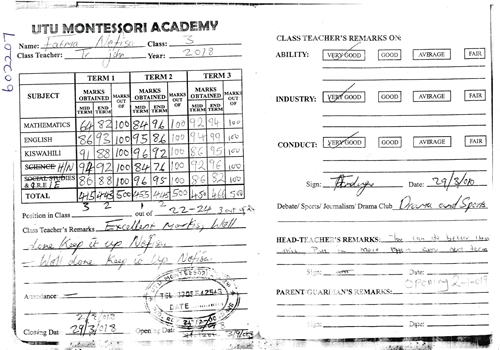 602207
UTU MONTESSORI ACADEMY
Name: Fatma Nafisa Class: 3
Class Teacher: Tr John Year: 2018
TERM 1 TERM 2 TERM 3
SUBJECT MARKS OBTAINED MARKS OUT OF MARKS OBTAINED MARKS OUT OF MARKS OBTAINED MARKS OUT OF
MID TERM END TERM MID TERM END TERM MID TERM END TERM
MATHEMATICS 64 82 100 84 96 100 92 94 100
ENGLISH 86 93 100 95 86 100 94 99 100
KISWAHILI 91 88 100 96 92 100 86 95 100
SCIENCE H/N 94 92 100 84 76 100 92 96 100
SOCIAL STUDIES & C.R.E / I.E 86 88 100 96 95 100 86 82 100
TOTAL 500 500 500
Position in Class out of 22-24
Class Teacher's Remarks Excellent Marks, Well
done Keep it up Nafisa
- Well done Keep it up Nafisa
Attendance
DATE
Closing Dat 29/3/018 Opening Dat
CLASS TEACHER'S REMARKS ON:
ABILITY: VERY GOOD GOOD AVERAGE FAIR
INDUSTRY: VERY GOOD GOOD AVERAGE FAIR
CONDUCT: VERY GOOD GOOD AVERAGE FAIR
Sign: Date: 29/3/018
Debate/ Sports/ Journalism/ Drama Club Drama and Sports
HEAD-TEACHER'S REMARKS: She can do better than
this Put in more next term
Sign: Date:
Opening 2-1-019
PARENT GUARDIAN'S REMARKS:
Sign: Date: